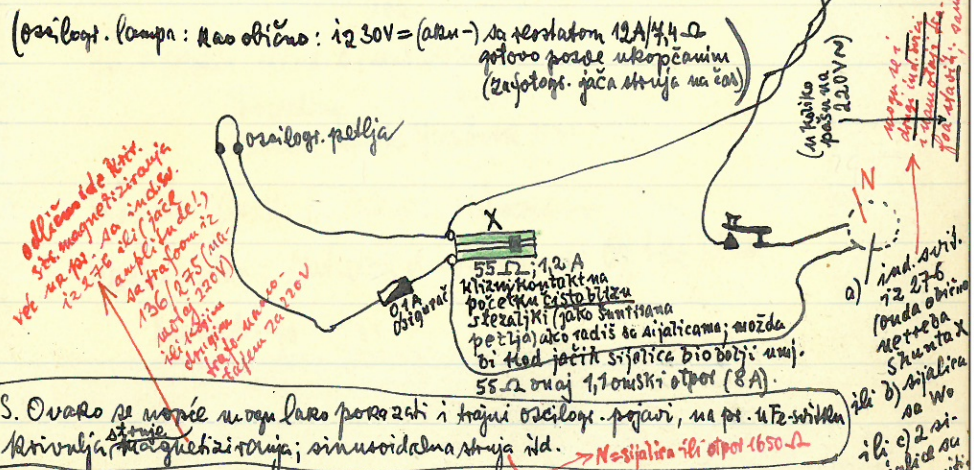 (oscilogr. lampa: kao obično: iz 30V = (aku-) sa reostatom 12A/7,4 Ω
gotovo posve ukopčanim
(za fotogr. jača struja na čas)
oscilogr. petlja
(ukoliko
pašu na
220V N)
mogu se i
drugi ind. svici
i namotaji
N
X
odlično ide kriv.
str. magnetiziranja
već na pr. sa ind. sv.
iz 276 ili (jače
amplitude!)
sa trafoom iz
136/275 (na-
motaj 220V)
ili sa njim
drugim
trafo-namo-
tajem za 220V
0,1A
osigurač
55 Ω; 1,2 A
klizni kontakt na
početku čisto blizu
stezaljki (jako šuntirana
petlja) ako radiš sa sijalicama; možda
bi kod jačih sijalica bio bolji umj.
55 Ω onaj 1,1 omski otpor (8A).
a) ind. svit.
iz 276
(onda obično
ne treba
shunta X
ili b) sijalica
sa Wo
ili c) 2 si-
jalice su
S. Ovako se uopće mogu lako pokazati i trajni oscilogr. pojavi, na pr. u Fe-svitku
krivulja struje magnetiziranja; sinusoidalna struja itd.
N = sijalica ili otpor 1650 Ω